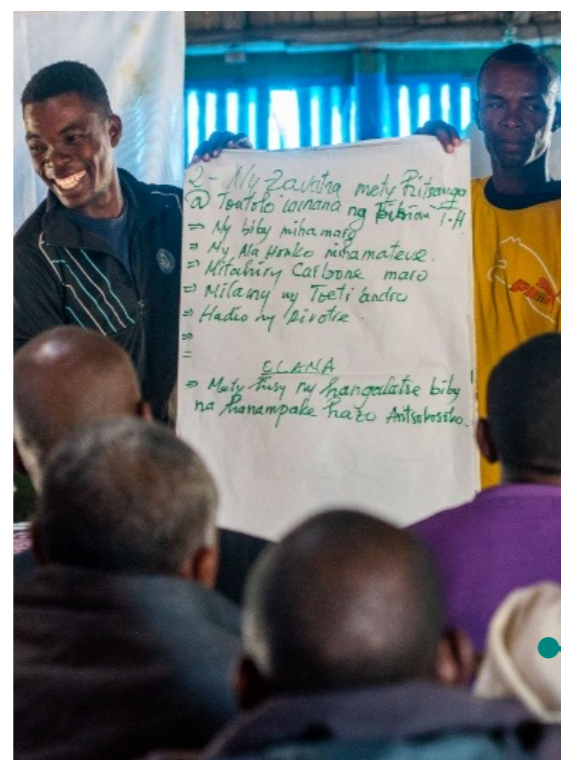 2 - Ny Zavatra mety Fitsanga
a Tontolo iainana ng
⇒ Ny biby mihamaro
⇒ Ny Ala Honko mihamateve.
⇒ Mitahiry Carbone maro
⇒ Milamy ny Toetr'andro
⇒ Hadio ny Rivotre.
⇒
=
OLANA
⇒ Mety hisy ny hangalatse biby
na hanampake hazo Antsokosoko.